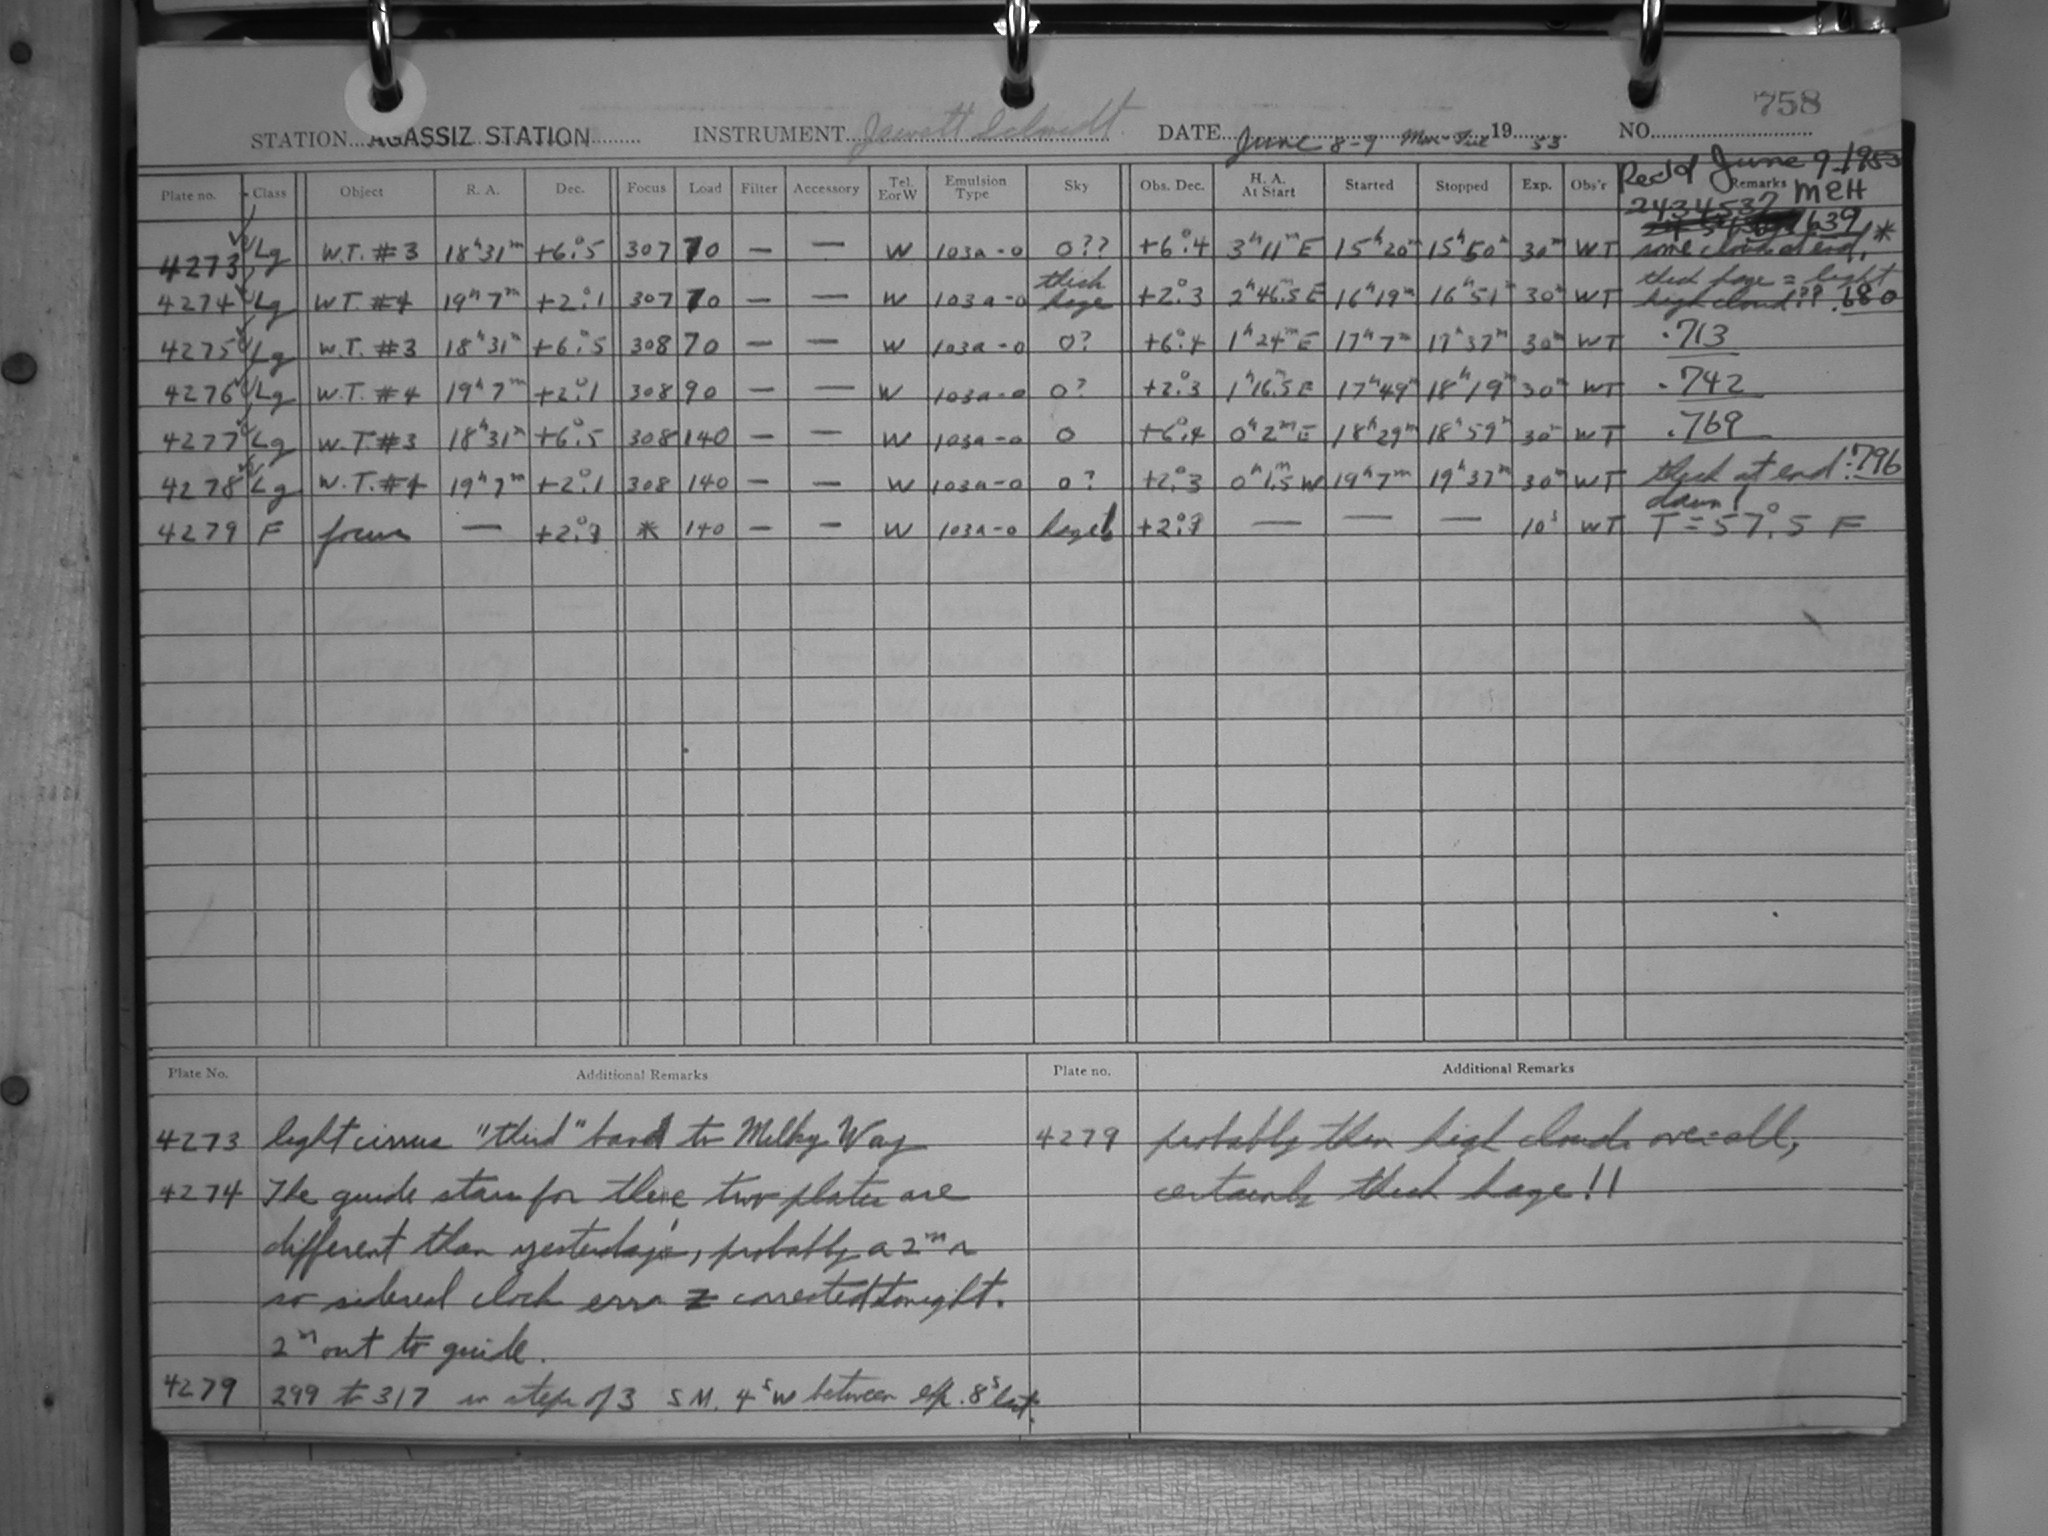 758
STATION AGASSIZ STATION INSTRUMENT Jewett Schmidt DATE June 8-9 Mon-Tue 1953 NO.
Rec'd June 9, 1953
Plate no. Class Object R. A. Dec. Focus Load Filter Accessory Tel. E or W Emulsion Type Sky Obs. Dec. H. A. At Start Started Stopped Exp. Obs'r Remarks MEH
2434537
.639
4273 Lg W.T. #3 18ʰ31ᵐ +6°.5 307 70 — — W 103a-o 0?? +6°.4 3ʰ11ᵐE 15ʰ20ᵐ 15ʰ50ᵐ 30ᵐ WT some clouds at end, *
4274 Lg W.T. #4 19ʰ7ᵐ +2°.1 307 70 — — W 103a-o thick haze +2°.3 2ʰ46ᵐ.5E 16ʰ19ᵐ 16ʰ51ᵐ 30ᵐ WT thick haze = light high cloud?? .680
4275 Lg W.T. #3 18ʰ31ᵐ +6°.5 308 70 — — W 103a-o 0? +6°.4 1ʰ24ᵐE 17ʰ7ᵐ 17ʰ37ᵐ 30ᵐ WT .713
4276 Lg W.T. #4 19ʰ7ᵐ +2°.1 308 90 — — W 103a-o 0? +2°.3 1ʰ16ᵐ.5E 17ʰ49ᵐ 18ʰ19ᵐ 30ᵐ WT .742
4277 Lg W.T. #3 18ʰ31ᵐ +6°.5 308 140 — — W 103a-o 0 +6°.4 0ʰ2ᵐE 18ʰ29ᵐ 18ʰ59ᵐ 30ᵐ WT .769
4278 Lg W.T. #4 19ʰ7ᵐ +2°.1 308 140 — — W 103a-o 0? +2°.3 0ʰ1ᵐ.5W 19ʰ7ᵐ 19ʰ37ᵐ 30ᵐ WT thick at end .796 dawn!
4279 F focus — * 140 — — W 103a-o haze! — — — 10ˢ WT T = 57°.5 F
Plate No. Additional Remarks Plate no. Additional Remarks
4273 light cirrus "third" band to Milky Way
4274 The guide stars for these two plates are
different than yesterday's, probably a 2ᵐ or
so sidereal clock error corrected tonight.
2ᵐ out to guide.
4279 299 to 317 in steps of 3 S.M. 4ˢW between exp. 8ˢ last.
4279 probably thin high clouds over all,
certainly thick haze!!